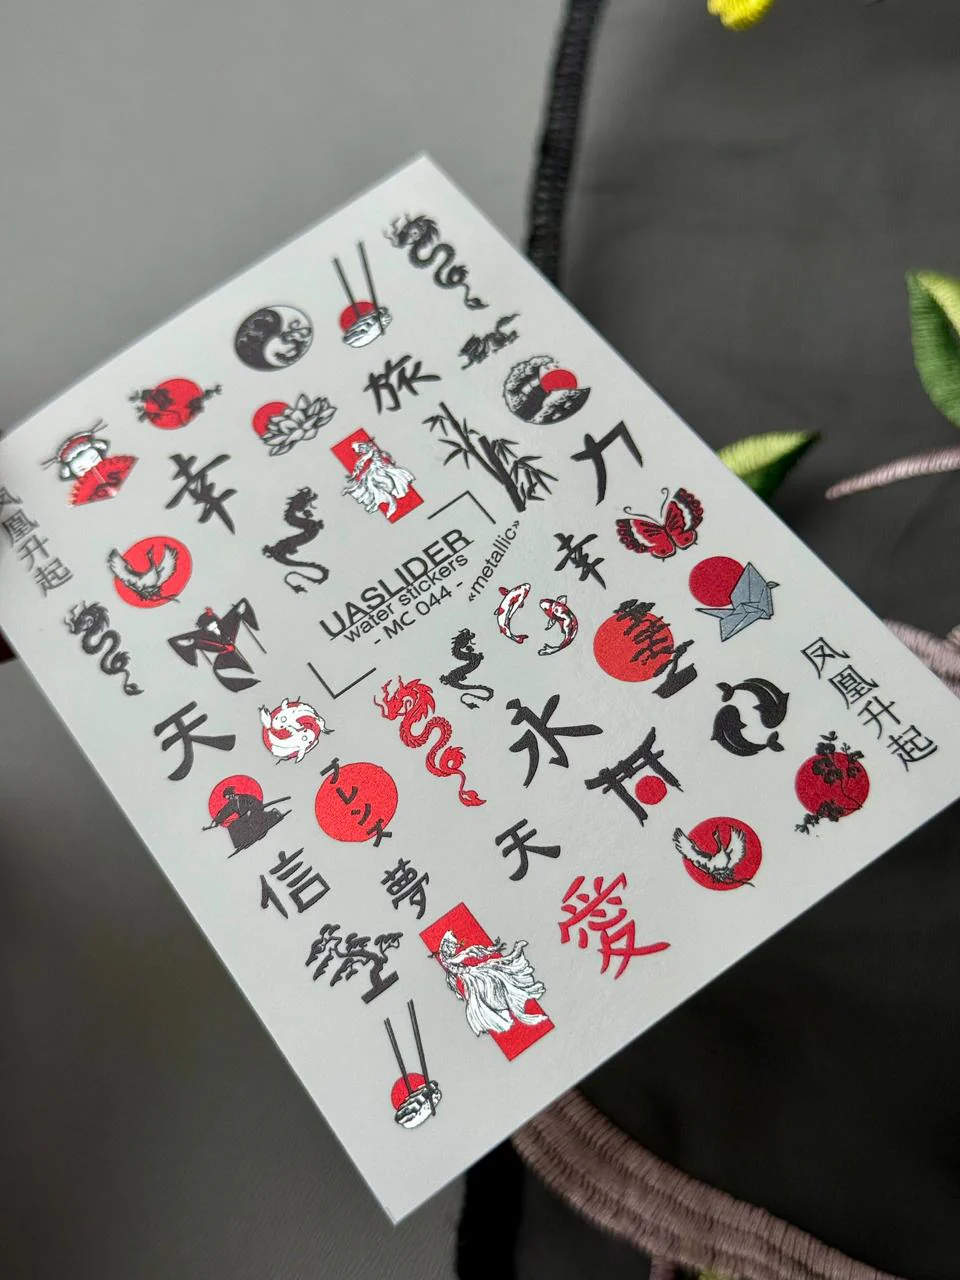 旅
力
幸
凤凰升起
UASLIDER
water stickers
- MC 044 -
«metallic»
幸
天
永
凤凰升起
フレンズ
信
夢
天
愛